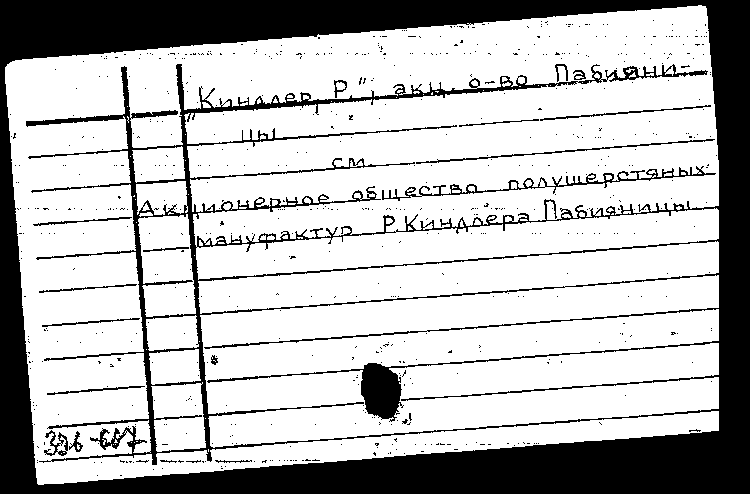 "Киндлер, Р.", акц. о-во Пабияни-
цы
см.
Акционерное общество полушерстяных
мануфактур Р.Киндлера Пабияницы